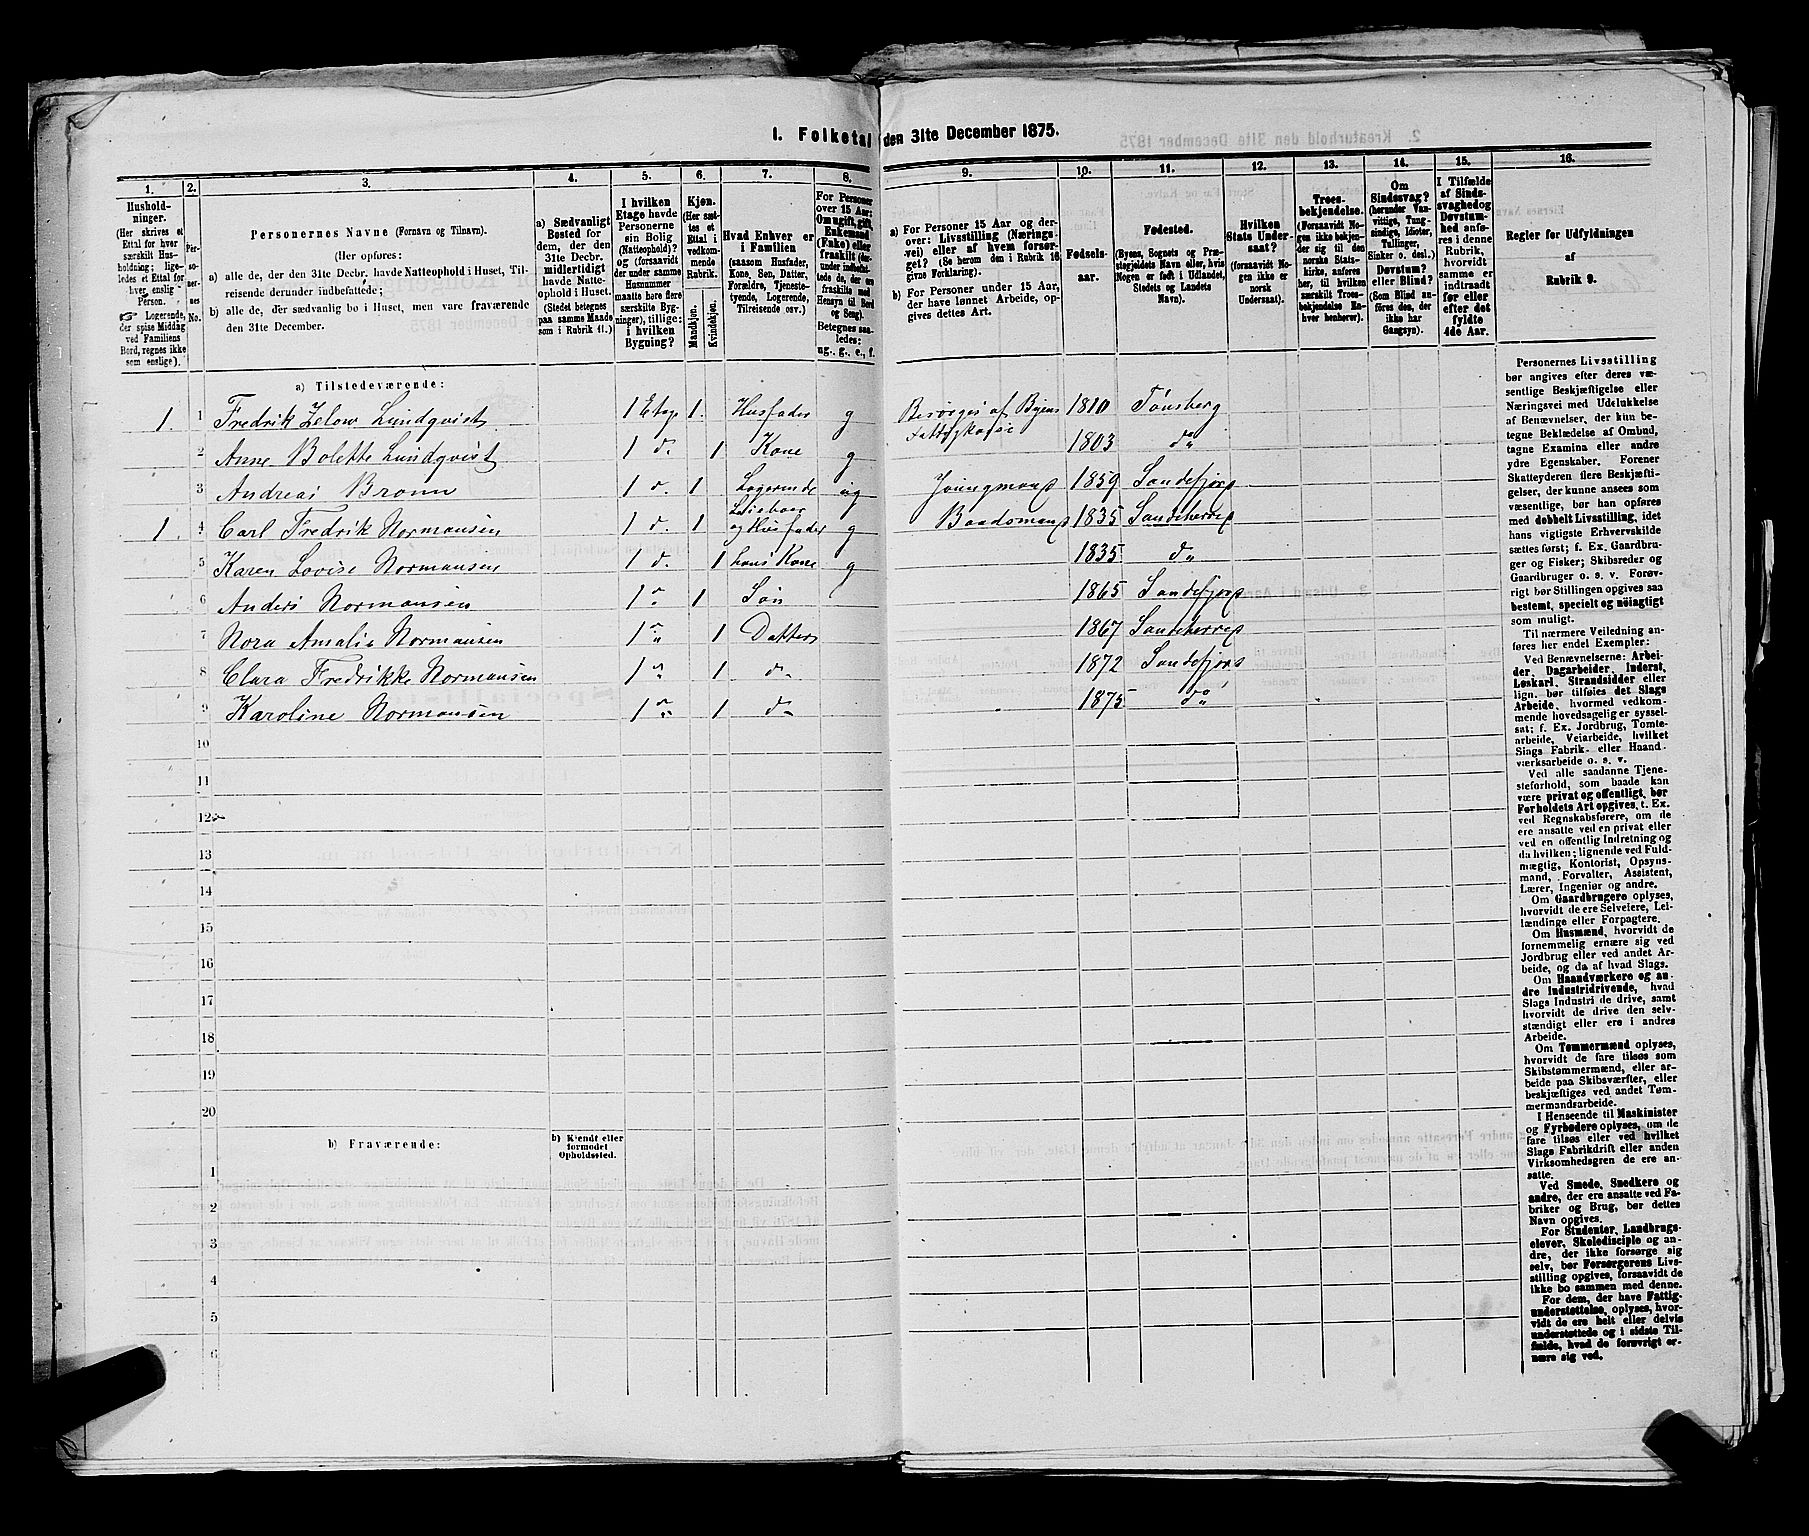 1. Folketal den 31te December 1875.
1.
2.
3.
4.
5.
6.
7.
8.
9.
10.
11.
12.
13.
14.
15.
16.
Hushold-
ninger.
(Her skrives et
Ettal for hver
særskilt Hus-
holdning; lige-
ledes et Ettal for
hver enslig
Person.
☞ Logerende,
der spise Middag
ved Familiens
Bord, regnes ikke
som enslige).
Per-
so-
ner-
nes
No.
Personernes Navne (Fornavn og Tilnavn).
(Her opføres:
a) alle de, der den 31te Decbr. havde Natteophold i Huset, Til-
reisende derunder indbefattede;
b) alle de, der sædvanlig bo i Huset, men vare fraværende
den 31te December.
a) Sædvanligt
Bosted for
dem, der den
31te Decbr.
midlertidigt
havde Natte-
ophold i Huset.
(Stedet betegnes
paa samme Maade
som i Rubrik 11.)
I hvilken
Etage havde
Personerne
sin Bolig
(Natteophold)?
og (forsaavidt
der under samme
Husnummer
maatte høre flere
særskilte Byg-
ninger), tillige:
i hvilken
Bygning?
Kjøn.
(Her sæt-
tes et
Ettal i
vedkom-
mende
Rubrik.
Mandkjøn.
Kvindekjøn.
Hvad Enhver er
i Familien
(saasom Husfader,
Kone, Søn, Datter,
Forældre, Tjeneste-
tyende, Logerende,
Tilreisende osv.)
For Personer
over 15 Aar:
Om ugift, gift,
Enkemand
(Enke) eller
fraskilt (der-
under indbefat-
tede de, der ere
fraskilte med
Hensyn til Bord
og Seng).
Betegnes saa-
ledes:
ug., g., e., f.
a) For Personer 15 Aar og der-
over: Livsstilling (Nærings-
vei) eller af hvem forsør-
get? (Se herom den i Rubrik 16
givne Forklaring).
b) For Personer under 15 Aar,
der have lønnet Arbeide, op-
gives dettes Art.
Fødsels-
aar.
Fødested.
(Byens, Sognets og Præ-
stegjeldets Navn eller, hvis
Nogen er født i Udlandet,
Stedets og Landets
Navn).
Hvilken
Stats Under-
saat?
(forsaavidt No-
gen ikke er
norsk
Undersaat).
Troes-
bekjendelse.
(Forsaavidt No-
gen ikke bekjen-
der sig til den
norske Stats-
kirke, anføres
her, til hvilken
særskilt Troes-
bekjendelse En-
hver henhører).
Om
Sindssvag?
(herunder Van-
vittige, Tung-
sindige, Idioter,
Tullinger,
Sinker o. desl.)
Døvstum?
eller Blind?
(Som Blind an-
føres den, der
ikke har
Gangsyn).
I Tilfælde
af Sinds-
svaghed og
Døvstum-
hed anfø-
res i denne
Rubrik,
hvorvidt
samme er
indtraadt
før eller
efter det
fyldte
4de Aar.
Regler for Udfyldningen
af
Rubrik 9.
a) Tilstedeværende:
1. 1 Fredrik Zelow Lundqvist 1 Etage 1. Husfader g Besørges af Byens Fattigkasse 1810 Tønsberg
2 Anne Bolette Lundqvist 1 d. 1 Kone g 1803 do
3 Andreas Bronn 1 d. 1 Logerende ug Joungmand 1859 Sandefjord
1. 4 Carl Fredrik Normansen 1 d. 1 Leieboer og Husfader g Baadsmand 1835 Sandeherred
5 Karen Lovise Normansen 1 d. 1 hans Kone g 1835 do
6 Anders Normansen 1 " 1 Søn 1865 Sandefjord
7 Nora Amalie Normansen 1 " 1 Datter 1867 Sandeherred
8 Clara Fredrikke Normansen 1 " 1 d. 1872 Sandefjord
9 Karoline Normansen 1 " 1 d. 1875 do
10
11
12
13
14
15
16
17
18
19
20
b) Fraværende:
b) Kjendt eller
formodet
Opholdssted.
1
2
3
4
5
6
Personernes Livsstilling
bør angives efter deres væ-
sentlige Beskjæftigelse eller
Næringsvei med Udelukkelse
af Benævnelser, der kun be-
tegne Beklædelse af Ombud,
tagne Examina eller andre
ydre Egenskaber. Forener
Skatteyderen flere Beskjæfti-
gelser, der kunne ansees som
væsentlige, bør han opføres
med dobbelt Livsstilling, idet
hans vigtigste Erhvervskilde
sættes først; f. Ex. Gaardbru-
ger og Fisker; Skibsreder og
Gaardbruger o. s. v. Forøv-
rigt bør Stillingen opgives saa
bestemt, specielt og nøiagtigt
som muligt.
Til nærmere Veiledning an-
føres her endel Exempler:
Ved Benævnelserne: Arbei-
der, Dagarbeider, Inderst,
Løskarl, Strandsidder eller
lign. bør tilføies det Slags
Arbeide, hvormed vedkom-
mende hovedsagelig er syssel-
sat; f. Ex. Jordbrug, Tomte-
arbeide, Veiarbeide, hvilket
Slags Fabrik- eller Haand-
værksarbeide o. s. v.
Ved alle saadanne Tjene-
steforhold, som baade kan
være privat og offentligt, bør
Forholdets Art opgives, t. Ex.
ved Regnskabsførere, om de
ere ansatte ved en privat eller
ved en offentlig Indretning og
da hvilken; lignende ved Fuld-
mægtig, Kontorist, Opsyns-
mand, Forvalter, Assistent,
Lærer, Ingeniør og andre.
Om Gaardbrugere oplyses,
hvorvidt de ere Selveiere, Lei-
lændinge eller Forpagtere.
Om Husmænd, hvorvidt de
fornemmelig ernære sig ved
Jordbrug eller ved andet Ar-
beide, og da af hvad Slags.
Om Haandværkere og an-
dre Industridrivende, hvad
Slags Industri de drive, samt
hvorvidt de drive den selv-
stændigt eller ere i andres
Arbeide.
Om Tømmermænd oplyses,
hvorvidt de fare tilsøs som
Skibstømmermænd, eller ar-
beide paa Skibsværfter, eller
beskjæftiges ved andet Tøm-
mermandsarbeide.
I Henseende til Maskinister
og Fyrbødere oplyses, om de
fare tilsøs eller ved hvilket
Slags Fabrikdrift eller anden
Virksomhedsgren de ere an-
satte.
Ved Smede, Snedkere og
andre, der ere ansatte ved Fa-
briker og Brug, bør dettes
Navn opgives.
For Studenter, Landbrugs-
elever, Skoledisciple og an-
dre, der ikke forsørge sig
selv, bør Forsørgerens Livs-
stilling opgives, forsaavidt de
ikke bo sammen med denne.
For dem, der have Fattig-
understøttelse, oplyses, hvor-
vidt de ere helt eller delvis
understøttede og i sidste Til-
fælde, hvad de forøvrigt er-
nære sig ved.